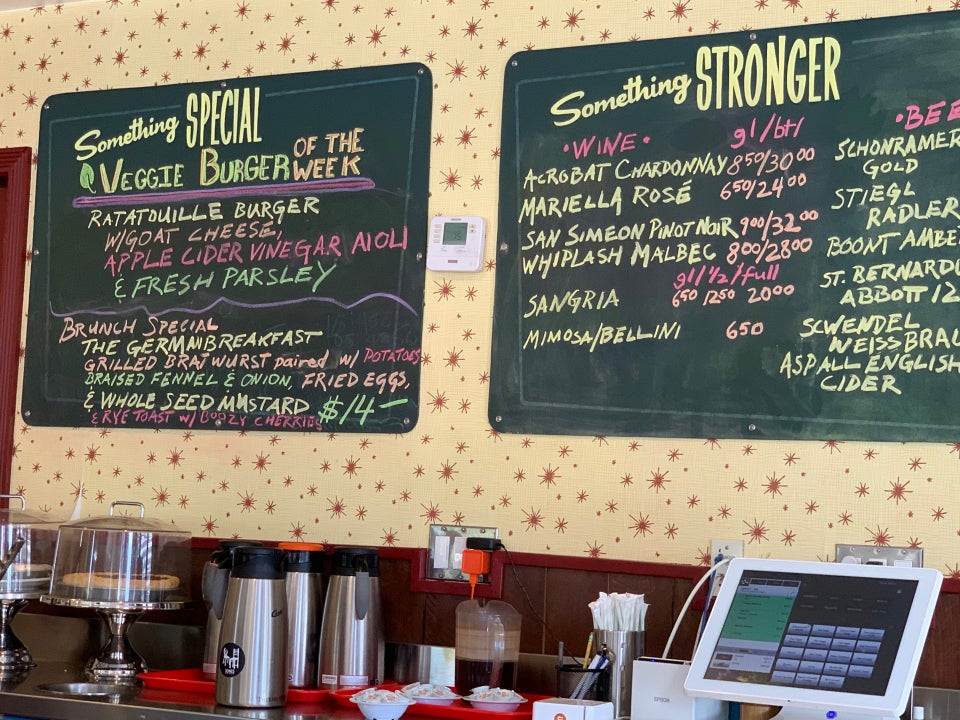 Something SPECIAL
VEGGIE BURGER OF THE WEEK
RATATOUILLE BURGER
W/GOAT CHEESE,
APPLE CIDER VINEGAR AIOLI
& FRESH PARSLEY
BRUNCH SPECIAL
THE GERMAN BREAKFAST
GRILLED BRATWURST paired w/ POTATOES
BRAISED FENNEL & ONION, FRIED EGGS,
& WHOLE SEED MUSTARD $14-
& RYE TOAST W/ BOOZY CHERRIES
Something STRONGER
• WINE • gl/btl
ACROBAT CHARDONNAY 8 50/30 00
MARIELLA ROSÉ 6 50/24 00
SAN SIMEON PINOT NOIR 9 00/32 00
WHIPLASH MALBEC 8 00/28 00
gl/½/full
SANGRIA 6 50 12 50 20 00
MIMOSA/BELLINI 6 50
• BEE
SCHONRAMER
GOLD
STIEGL
RADLER
BOONT AMBE
ST. BERNARD
ABBOTT 12
SCWENDEL
WEISSBRAU
ASPALL ENGLISH
CIDER
EPSON